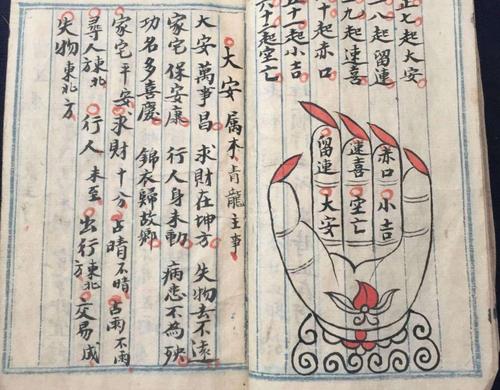 正七起大安
八起留連
九起速喜
起赤口
十一起小吉
六十二起空亡
赤口
速喜
留連
小吉
空亡
大安
大安 属木青龍主事
大安萬事昌 求財在坤方 失物去不遠
家宅保安康 行人身未動 病患不為殃
功名多喜慶 錦衣歸故鄉
家宅平安求財十分占晴不晴占雨不雨
尋人東北方 行人未至 出行東北方 交易成
失物東北方